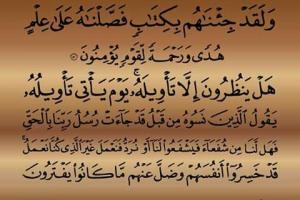 وَلَقَدْ جِئْنَٰهُم بِكِتَٰبٍ فَصَّلْنَٰهُ عَلَىٰ عِلْمٍ
هُدًى وَرَحْمَةً لِّقَوْمٍ يُؤْمِنُونَ
هَلْ يَنظُرُونَ إِلَّا تَأْوِيلَهُۥ ۚ يَوْمَ يَأْتِى تَأْوِيلُهُۥ
يَقُولُ ٱلَّذِينَ نَسُوهُ مِن قَبْلُ قَدْ جَآءَتْ رُسُلُ رَبِّنَا بِٱلْحَقِّ
فَهَل لَّنَا مِن شُفَعَآءَ فَيَشْفَعُوا۟ لَنَآ أَوْ نُرَدُّ فَنَعْمَلَ غَيْرَ ٱلَّذِى كُنَّا نَعْمَلُ ۚ
قَدْ خَسِرُوٓا۟ أَنفُسَهُمْ وَضَلَّ عَنْهُم مَّا كَانُوا۟ يَفْتَرُونَ